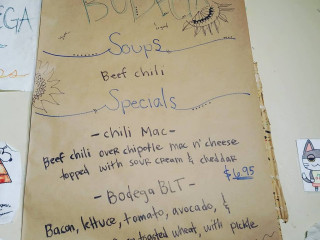 BODEGA
EGA
Soups
Beef chili
Specials
- chili Mac -
Beef chili over chipotle mac n' cheese
topped with sour cream & cheddar
$6.95
- Bodega BLT -
Bacon, lettuce, tomato, avocado, &
toasted wheat, with pickle